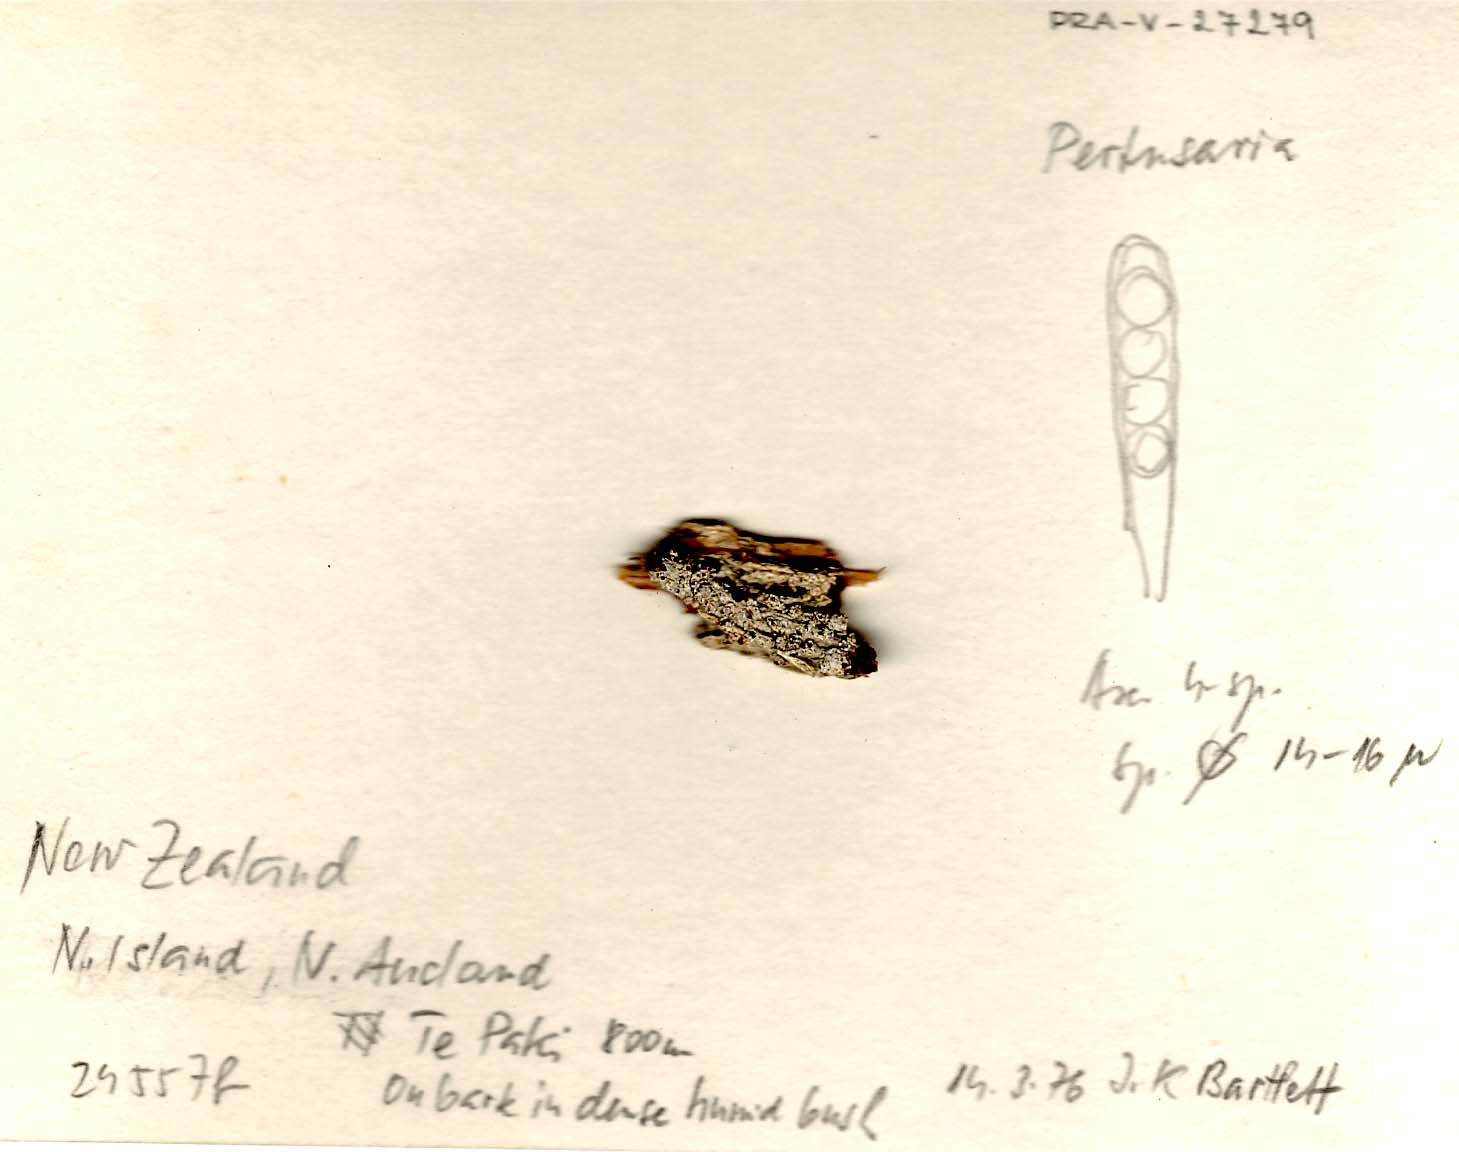 PRA-V-27279
Pertusaria
Asc. 4-sp.
Sp. Ø 14-16 µ
New Zealand
N. Island, N. Aucland
Te Paki 800m
24557f
On bark in dense humid bush
14.3.76 J.K Bartlett